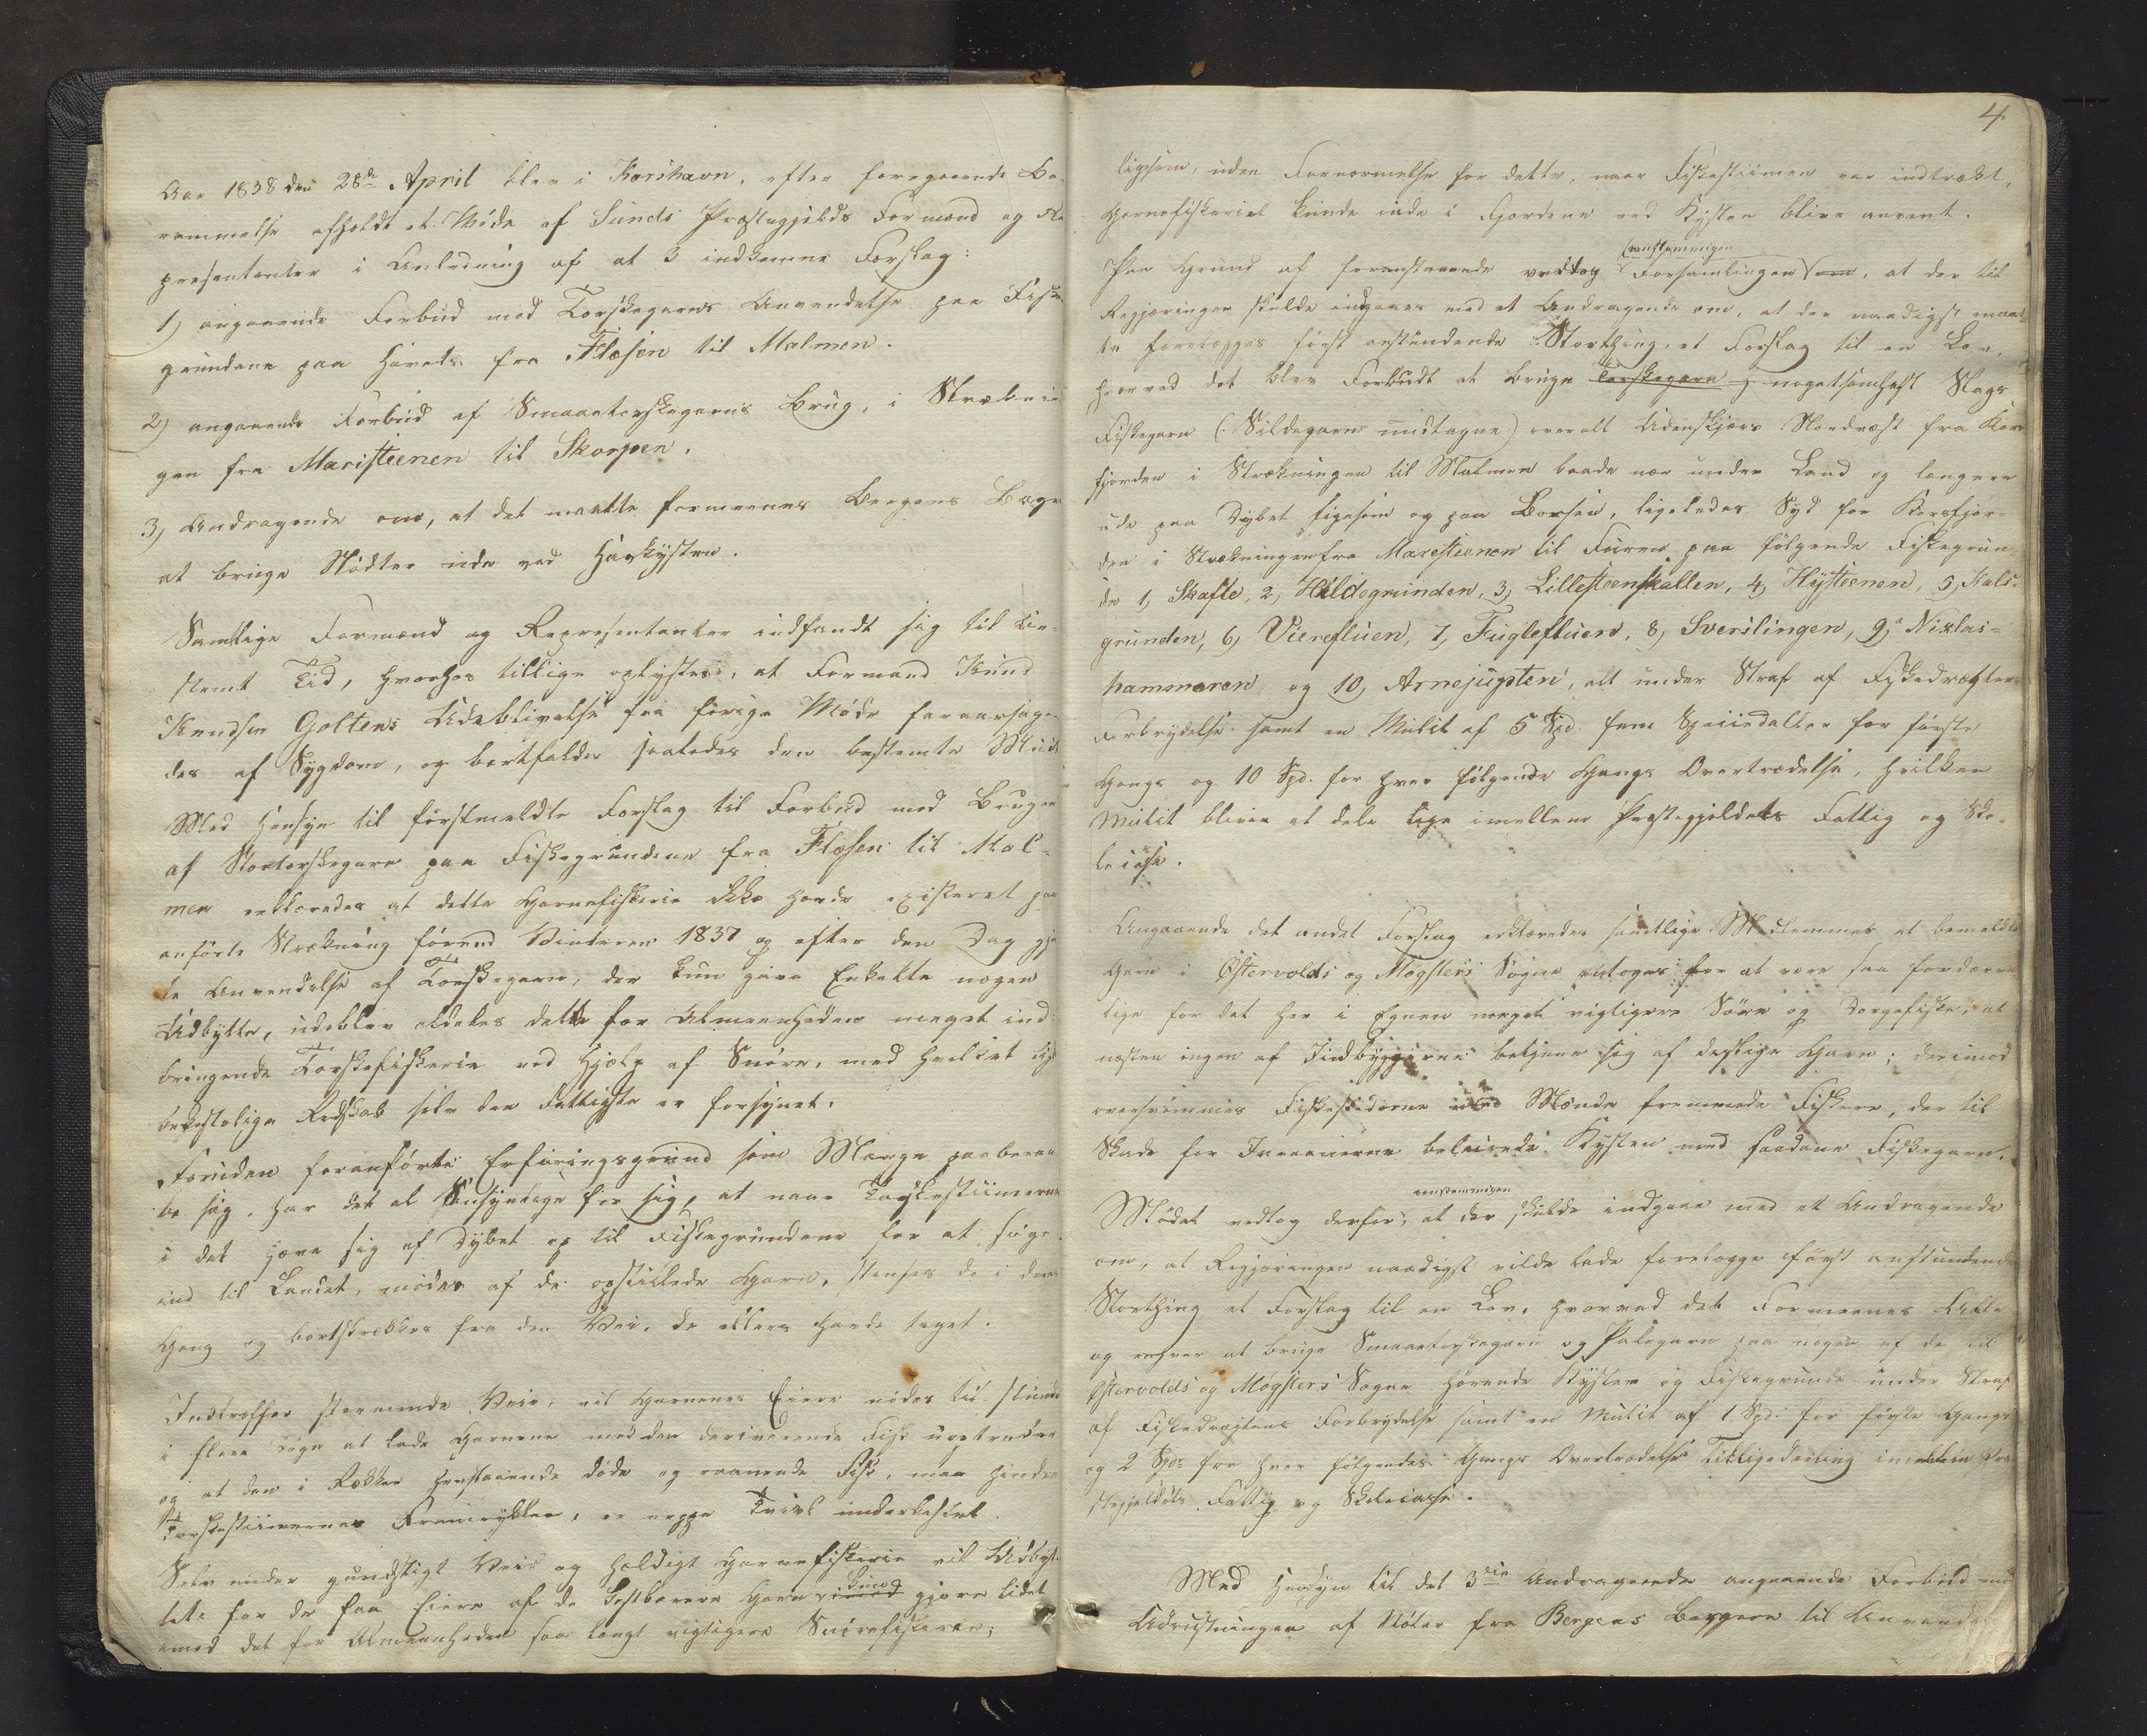 Aar 1838 den 28de April blev i Korshavn, efter foregaaende Be-
rammelse afholdt et Møde af Sunds Præstegjelds Formænd og Re-
presentanter i Anledning af at 3 indkomne Forslag:
1) angaaende Forbud mod Torskegarns Anvendelse paa Fiske-
grundene paa Havet fra Flæsen til Malmen.
2) angaaende Forbud af Smaatorskegarns Brug, i Stræknin-
gen fra Maristeenen til Skorpen.
3) Andragende om, at det maatte formeenes Bergens Borgere
at bruge Nødter ude ved Havkysten.
Samtlige Formænd og Representanter indfandt sig til be-
stemt Tid, hvorhos tillige oplystes, at Formand Knud
Knudsen Goltens Udeblivelse fra forige Møde foraarsage-
des af Sygdom, og bortfalder saaledes den bestemte Mulct
Med Hensyn til førstmeldte Forslag til Forbud mod Brugen
af Stortorskegarn paa Fiskegrundene fra Flæsen til Mal-
men erklæredes at dette Garnefiskerie ikke havde existeret paa
anførte Strækning førend Vinteren 1837 og efter den Dag gjor-
te Anvendelse af Torskegarn, der kun gave Enkelte nogen
Udbytte, udeblev aldeles dette for Almeenheden meget ind-
bringende Torskefiskerie ved Hjelp af Snøre, med hvilket
bekostelige Redskab selv den fattigste er forsynet.
Foruden foranførte Erfaringsgrund som Mange paaberaa-
be sig, har det al Sansynlige for sig, at naar Torskestiimerne
i det hæve sig af Dybet op til Fiskegrundene for at søge
ind til Landet, mødes af de opstillede Garn, standses de i deres
Gang og bortskrækkes fra den Vei, de ellers havde taget.
Indtræffer stormende Veir, vil Garnenes Eiere nødes til stundom
i flere Døgn at lade Garnene med den deriværende Fisk uoptrukne
og at den i Rækker henstaaende døde og raanende Fisk, maa hindre
Torskestiimernes Fremrykken, er neppe Tvivl underkastet.
Selv under gundstigt Veir og heldigt Garnefiskerie vil Udbyt-
tet for de faa Eiere af de kostbarere Garn kun gjøre lidet
imod det for Almeenheden saa langt vigtigere Snørefiskerie;
4
ligesom, uden Fornærmelse for dette, naar Fiskestiimen var indtrækt,
Garnefiskeriet kunde inde i Fjordene ved Kysten blive anvent.
Paa Grund af foranstaaende vedtog Forsamlingen eenstemmigen, at der til
Regjæringen skulde indgaaes med et Andragende om, at der naadigst maat-
te forelægges først anstundende Storthing, et Forslag til en Lov,
hvorved det blev Forbudt at bruge Torskegarn nogetsomhelst Slags
Fiskegarn (Sildegarn undtagne) overalt Udenskjærs Nordvæst fra Kors-
fjorden i Strækningen til Malmen baade nær under Land og længere
ude paa Dybet ligesom og paa Børsen, ligeledes Syd for Korsfjor-
den i Strækningen fra Maresteenen til Furen paa følgende Fiskegrun-
de 1, Skafte, 2, Hildegrunden, 3, Lillesteenskallen, 4, Hysteenen, 5, Kals-
grunden, 6, Vierefluen, 7, Fuglefluen, 8, Sverslingen, 9, Nixlas-
hammeren og 10, Arnejupten, alt under Straf af Fiskedrægtens
Forbrydelse samt en Mulct af 5 Spd. fem Speciedaller for første
Gang og 10 Spd. for hver følgende Gangs Overtrædelse, hvilken
Mulct bliver at dele lige imellem Præstegjeldets Fattig og Sko-
lecasse.
Angaaende det andet Forslag erklæredes samtlige Medlemmer at bemeldte
Garn i Østervolds og Møgsters Sogne antages for at være saa fordærve-
lige for det her i Egnen meget vigtigere Snøre og Dorgefiske, at
næsten ingen af Indbyggerne betjene sig af deslige Garn; derimod
oversvømmes Fiskestiderne med Mængde fremmede Fiskere, der til
Skade for Invaanerne beleirede Kysten med saadane Fiskegarn.
Mødet vedtog derfor eenstemmigen, at der skulde indgaae med et Andragende
om, at Regjæringen naadigst vilde lade forelægge først anstundende
Storthing et Forslag til en Lov, hvorved det Formeenes Alle
og enhver at bruge Smaatorskegarn og Palegarn paa nogen af de til
Østervolds og Møgsters Sogne hørende Kyster og Fiskegrunde under Straf
af Fiskedrægtens Forbrydelse samt en Mulct af 1 Spd. for første Gang
og 2 Spd. for hver følgendes Gangs Overtrædelse til lige deeling imellem Præ-
stegjeldets Fattig og Skolecasse.
Med Hensyn til det 3die Andragende angaaende Forbud mod
Udrustningen af Nøter fra Bergens Borgere til Anvend-